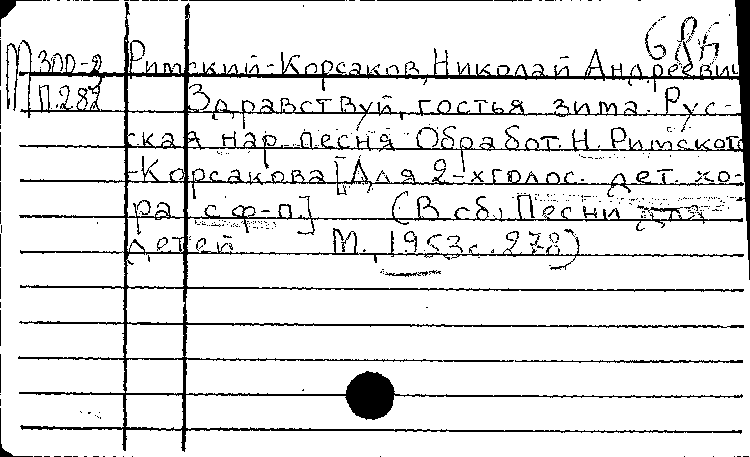 686
М 300-2 Римский-Корсаков, Николай Андреевич
П.287 Здравствуй, гостья зима. Рус-
ская нар. песня Обработ. Н. Римского
-Корсакова [Для 2-хголос. дет. хо-
ра с ф-п.] (В сб. Песни для
детей М., 1953 с. 278)